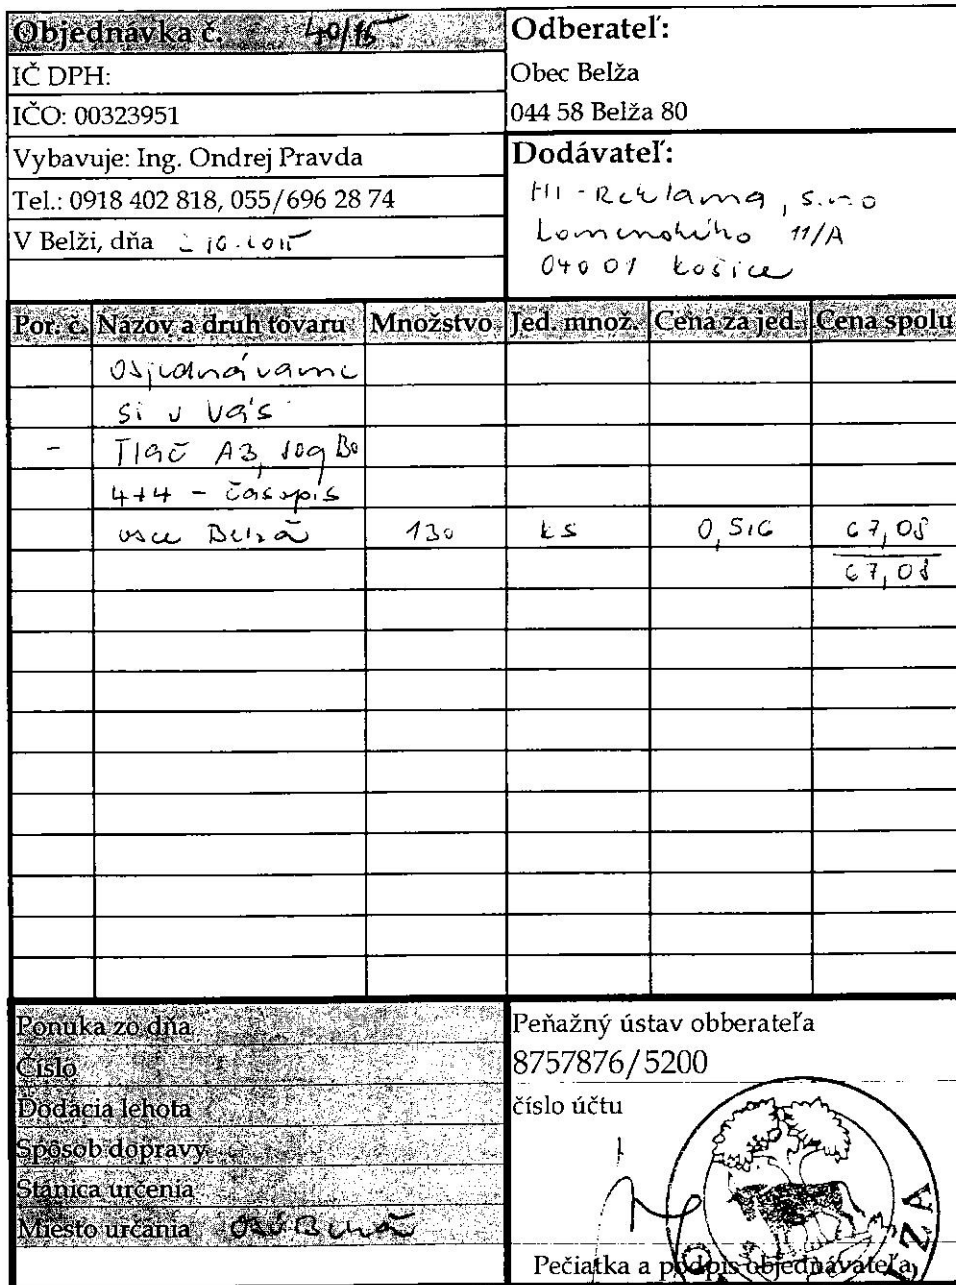 Objednávka č. 40/15
IČ DPH:
IČO: 00323951
Vybavuje: Ing. Ondrej Pravda
Tel.: 0918 402 818, 055/696 28 74
V Belži, dňa 2 10.2015
Odberateľ:
Obec Belža
044 58 Belža 80
Dodávateľ:
HI-Reklama, s.r.o
Komenského 11/A
040 01 Košice
Por. č. Názov a druh tovaru Množstvo Jed. množ. Cena za jed. Cena spolu
Objednávame
si u Vás
- Tlač A3,
4+4 - časopis
obce Belža 130 ks 0,516 67,08
67,08
Ponuka zo dňa
Číslo
Dodacia lehota
Spôsob dopravy
Stanica určenia
Miesto určania OcÚ Belža
Peňažný ústav obberateľa
8757876/5200
číslo účtu
Pečiatka a podpis objednávateľa